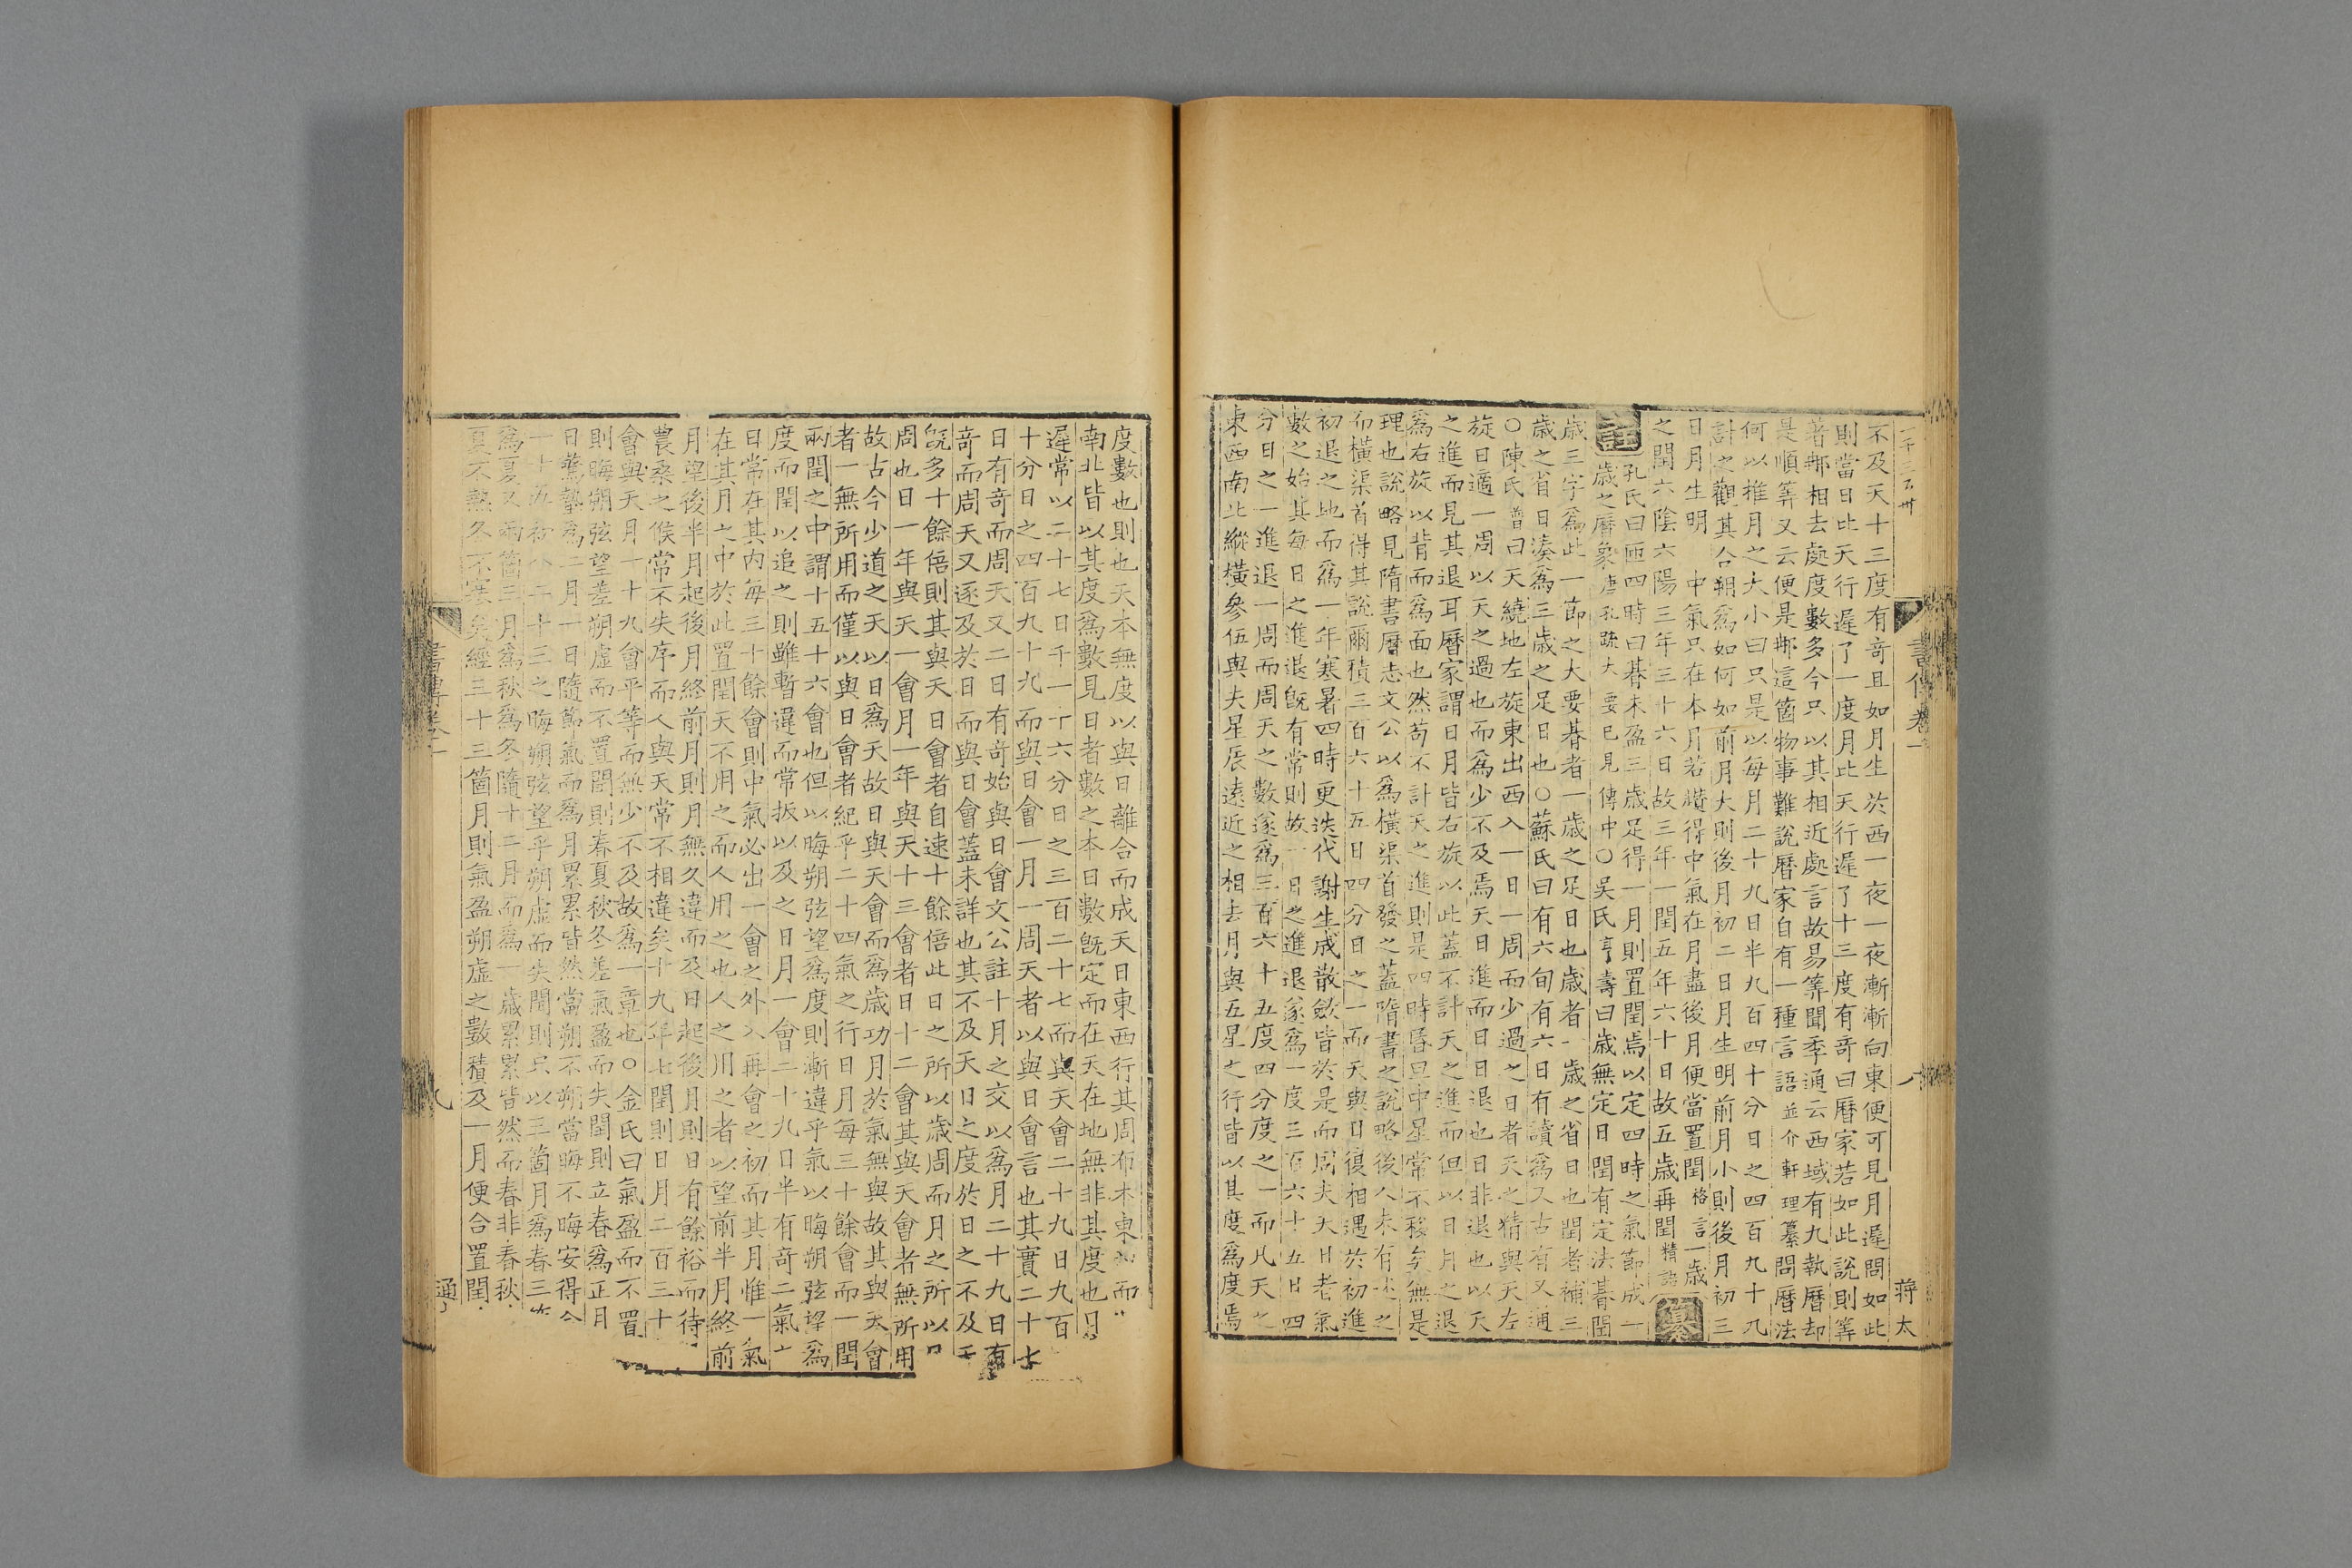 一千三百卅
書傳卷一
八
蔣太
不及天十三度有奇且如月生於西一夜一夜漸漸向東便可見月遲問如此
則當日比天行遲了一度月比天行遲了十三度有奇曰曆家若如此說則筭
著那相去處度數多今只以其相近處言故易筭聞季通云西域有九執曆却
是順筭又云便是那這箇物事難說曆家自有一種言語並介軒理纂問曆法
何以推月之大小曰只是以每月二十九日半九百四十分日之四百九十九
計之觀其合朔爲如何如前月大則後月初二日月生明前月小則後月初三
日月生明 中氣只在本月若趲得中氣在月盡後月便當置閏格言一歲
之閏六陰六陽三年三十六日故三年一閏五年六十日故五歲再閏精語纂
註孔氏曰匝四時曰朞未盈三歲足得一月則置閏焉以定四時之氣節成一
歲之曆象唐孔疏大要已見傳中○吳氏亨壽曰歲無定日閏有定法朞閏
歲三字爲此一節之大要朞者一歲之足日也歲者一歲之省日也閏者補三
歲之省日湊爲三歲之足日也○蘇氏曰有六旬有六日有讀爲又古有又通
○陳氏普曰天繞地左旋東出西入一日一周而少過之日者天之精與天左
旋日適一周以天之過也而爲少不及焉天日進而日日退也日非退也以天
之進而見其退耳曆家謂日月皆右旋以此蓋不計天之進而但以日月之退
爲右旋以背而爲面也然苟不計天之進則是四時昏旦中星常不移矣無是
理也說略見隋書曆志文公以爲橫渠首發之蓋隋書之說略後人未有述之
而橫渠首得其說爾積三百六十五日四分日之一而天與日復相遇於初進
初退之地而爲一年寒暑四時更迭代謝生成散斂皆於是而周夫天日老氣
數之始其每日之進退既有常則故一日之進退遂爲一度三百六十五日四
分日之一進退一周而周天之數遂爲三百六十五度四分度之一而凡天之
東西南北縱橫參伍與夫星辰遠近之相去月與五星之行皆以其度爲度焉
度數也則也天本無度以與日離合而成天日東西行其周布本東而
南北皆以其度爲數見日者數之本日數既定而在天在地無非其度也日
遲常以二十七日千一十六分日之三百二十七而與天會二十九日九百
十分日之四百九十九而與日會一月一周天者以與日會言也其實二十七
日有奇而周天又二日有奇始與日會文公註十月之交以爲月二十九日有
奇而周天又逐及於日而與日會蓋未詳也其不及天日之度於日之不及天
既多十餘倍則其與天日會者自速十餘倍此日之所以歲周而月之所以
周也日一年與天一會月一年與天十三會者日十二會其與天會者無所用
故古今少道之天以日爲天故日與天會而爲歲功月於氣無與故其與天會
者一無所用而僅以與日會者紀乎二十四氣之行日月每三十餘會而一閏
兩閏之中謂十五十六會也但以晦朔弦望爲度則漸違乎氣以晦朔弦望爲
度而閏以追之則雖暫違而常扳以及之日月一會二十九日半有奇二氣
日常在其內每三十餘會則中氣必出一會之外入再會之初而其月惟一氣
在其月之中於此置閏天不用之而人用之也人之用之者以望前半月終前
月望後半月起後月終前月則月無久違而及日起後月則日有餘裕而待
農桑之候常不失序而人與天常不相違矣十九年七閏則日月二百三十
會與天月一十九會平等而無少不及故爲一章也○金氏曰氣盈而不置
則晦朔弦望差朔虛而不置閏則春夏秋冬差氣盈而失閏則立春爲正月
日驚蟄爲二月一日隨節氣而爲月累累皆然當朔不朔當晦不晦安得
一十五初八二十三之晦朔弦望乎朔虛而失閏則只以三箇月爲春三
爲夏又兩箇三月爲秋爲冬隨十二月而爲一歲累累皆然而春非春秋
夏不熱冬不寒矣經三十三箇月則氣盈朔虛之數積及一月便合置閏
書傳卷一
九
通